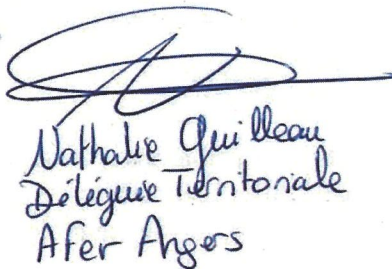 Nathalie Guilleau
Déléguée Territoriale
Afer Angers